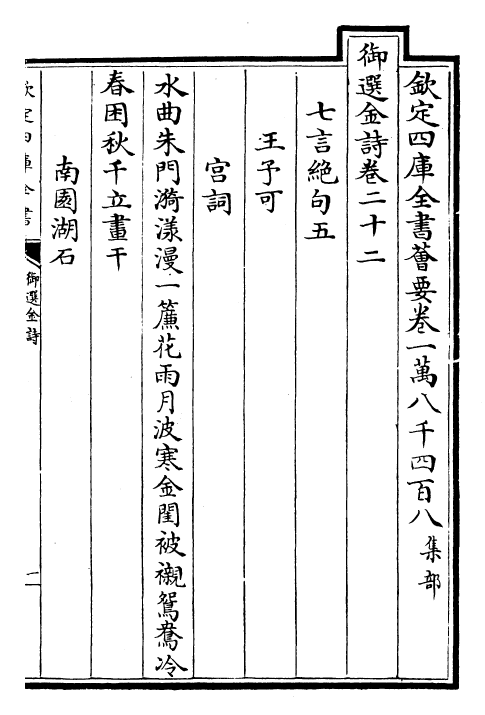 欽定四庫全書薈要卷一萬八千四百八 集部
御選金詩卷二十二
七言絶句五
王予可
宫詞
水曲朱門漪漾漫一簾花雨月波寒金閨被襯鴛鴦冷
春困秋千立畫干
南園湖石
欽定四庫全書
御選金詩